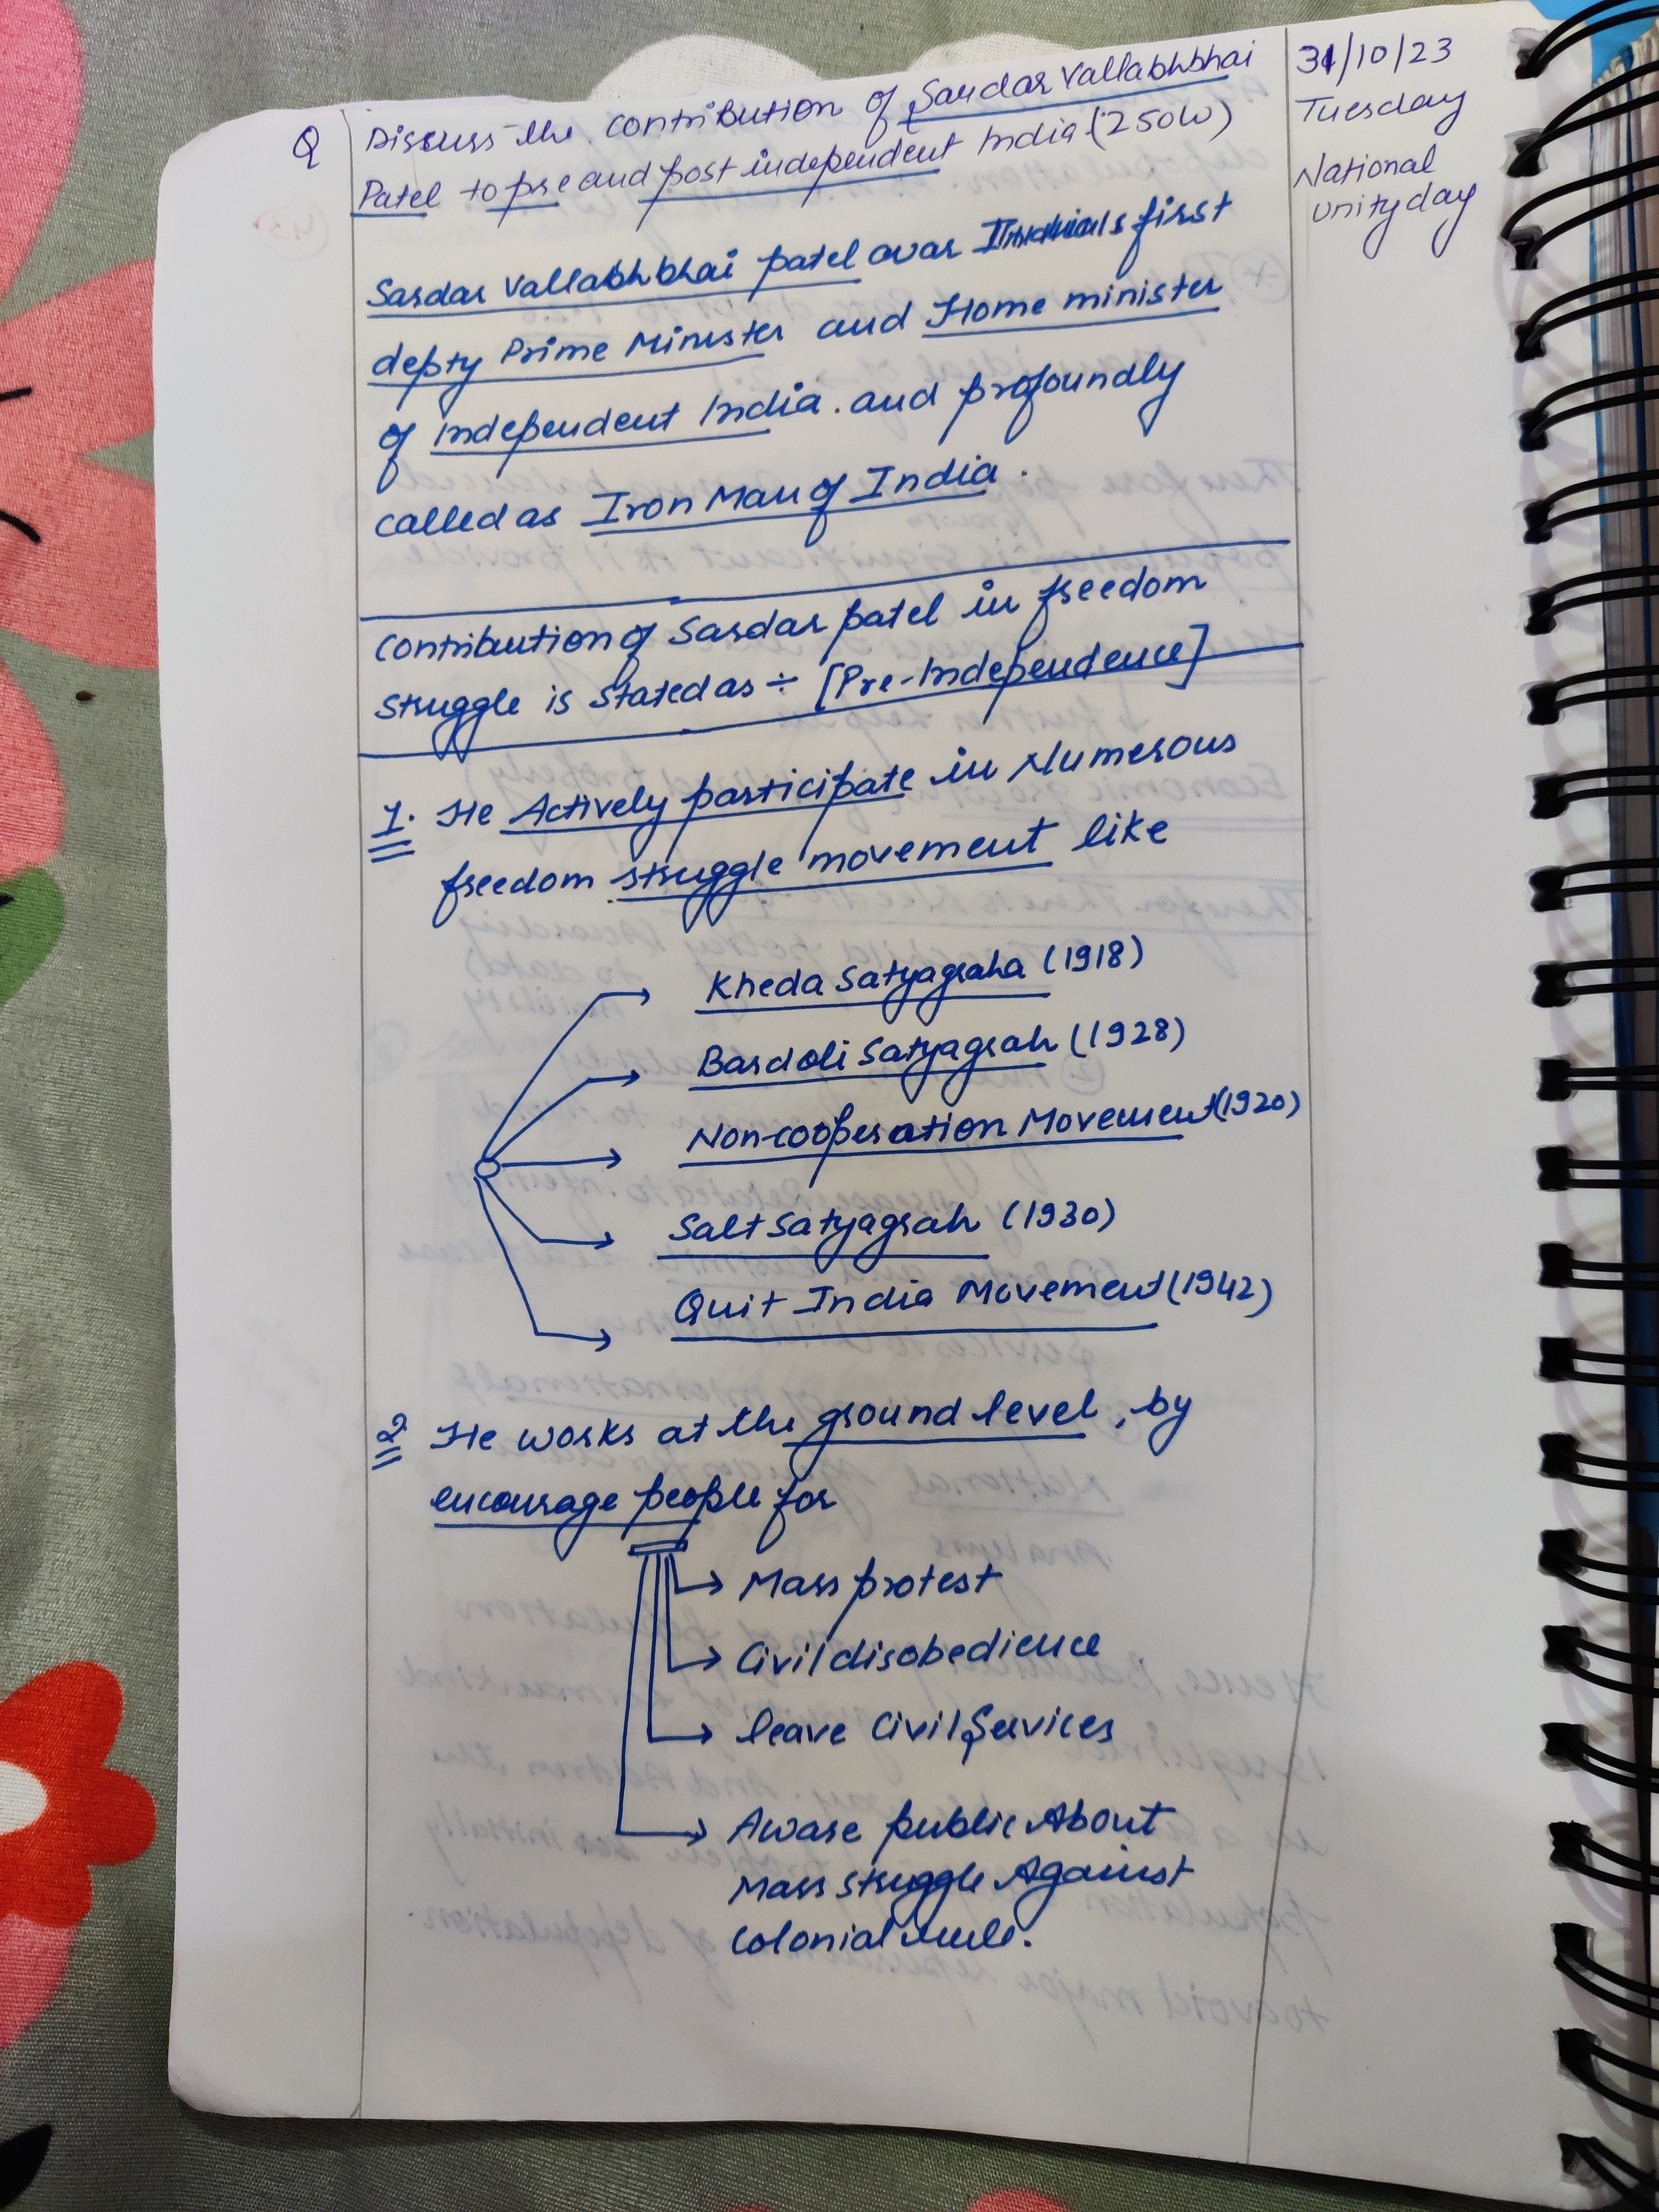 Q Discuss the contribution of Sardar Vallabhbhai
Patel to pre and post independent India (250W)
31/10/23
Tuesday
National
Unity day
Sardar Vallabhbhai patel was first
depty Prime Minister and Home minister
of independent India. and profoundly
called as Iron Man of India.
Contribution of Sardar patel in freedom
struggle is stated as ÷ [Pre-Independence]
1. He Actively participate in Numerous
freedom struggle movement like
Kheda Satyagraha (1918)
Bardoli Satyagrah (1928)
Non-cooperation Movement (1920)
Salt Satyagrah (1930)
Quit India Movement (1942)
2. He works at the ground level, by
encourage people for
Mass protest
Civil disobedience
leave Civil Services
Aware public About
Mass struggle Against
colonial rule.